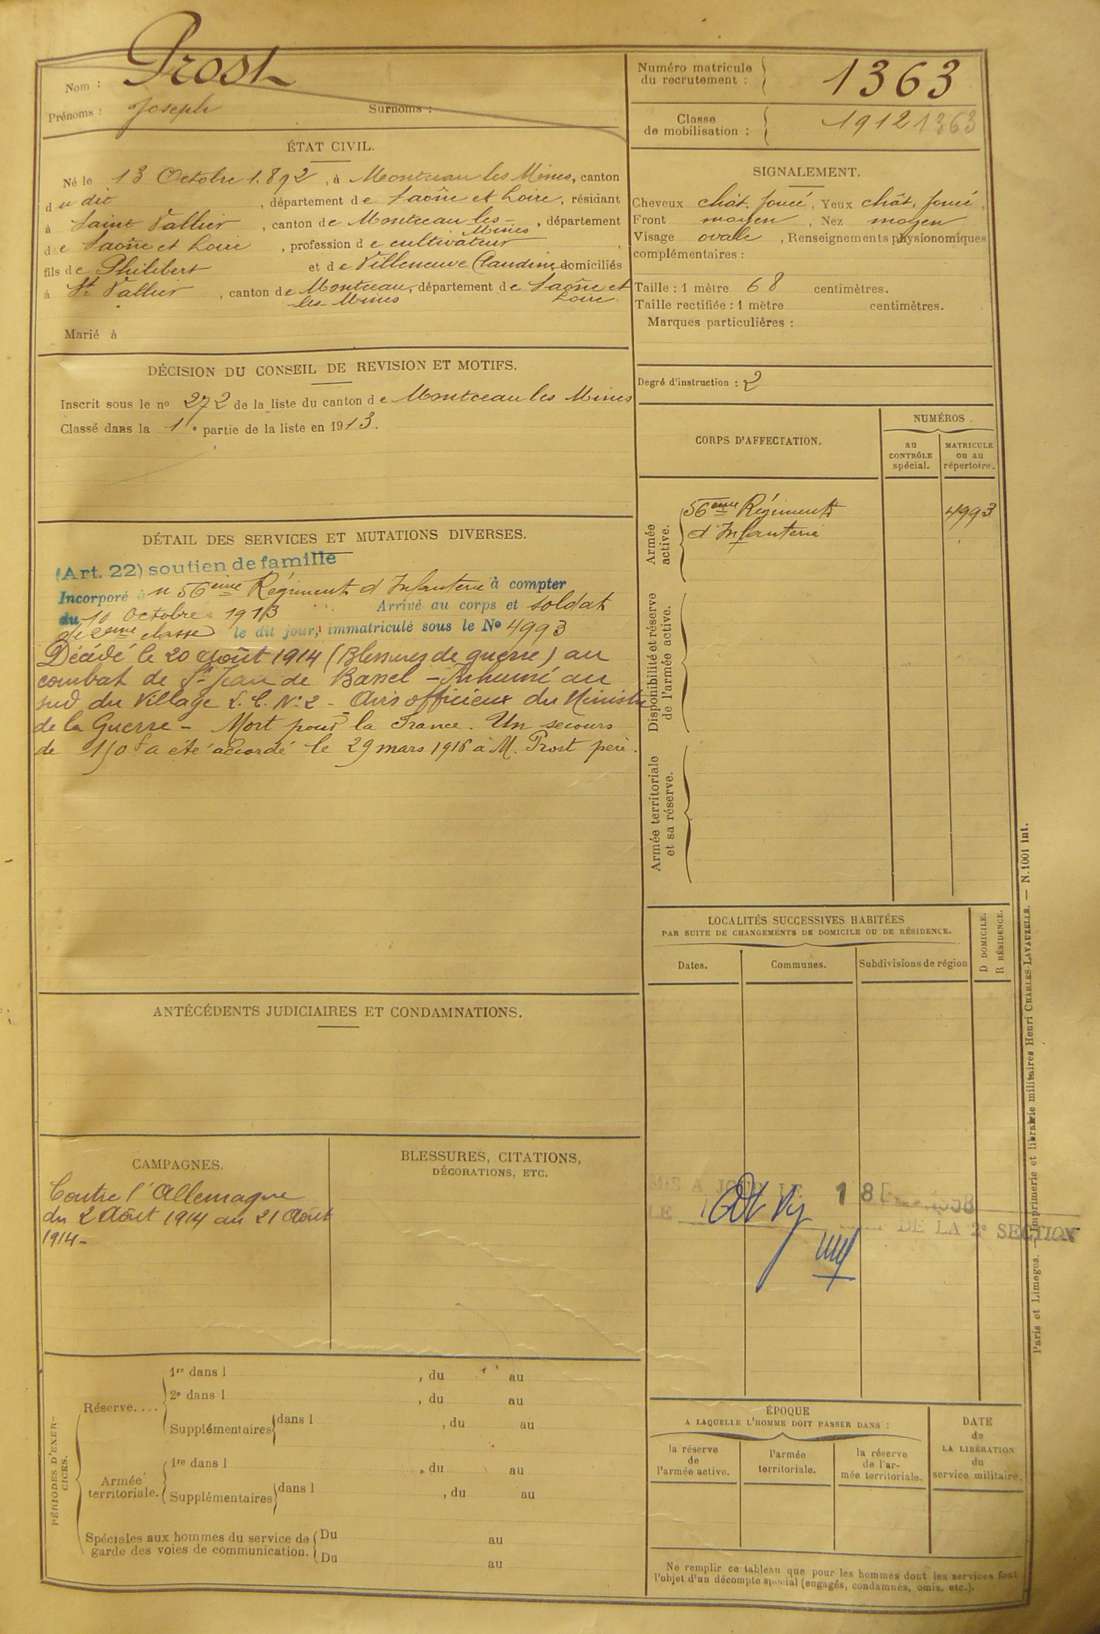 Nom : Prost
Prénoms : Joseph Surnoms :
ÉTAT CIVIL.
Né le 13 Octobre 1892, à Montceau les Mines, canton
du dit, département de Saône et Loire, résidant
à Saint Vallier, canton de Montceau les Mines, département
de Saône et Loire, profession de cultivateur,
fils de Philibert et de Villeneuve Claudine domiciliés
à St Vallier, canton de Montceau les Mines, département de Saône et Loire.
Marié à
DÉCISION DU CONSEIL DE REVISION ET MOTIFS.
Inscrit sous le no 272 de la liste du canton de Montceau les Mines
Classé dans la 1e partie de la liste en 1913.
DÉTAIL DES SERVICES ET MUTATIONS DIVERSES.
(Art. 22) soutien de famille
Incorporé au 56ème Régiment d'Infanterie à compter
du 10 Octobre 1913 Arrivé au corps et soldat
de 2ème classe le dit jour, immatriculé sous le No 4993
Décédé le 20 août 1914 (Blessures de guerre) au
combat de St Jean de Bassel - Inhumé au
sud du Village L.C. No 2 - Avis officieux du Ministre
de la Guerre - Mort pour la France. Un secours
de 150 f a été accordé le 29 mars 1916 à M. Prost père.
ANTÉCÉDENTS JUDICIAIRES ET CONDAMNATIONS.
CAMPAGNES.
Contre l'Allemagne
du 2 Août 1914 au 21 Août
1914 -
BLESSURES, CITATIONS,
DÉCORATIONS, ETC.
PÉRIODES D'EXERCICES.
Réserve....
1re dans l , du au
2e dans l , du au
Supplémentaires dans l , du au
Armée territoriale.
1re dans l , du au
Supplémentaires dans l , du au
Spéciales aux hommes du service de garde des voies de communication.
Du au
Du au
Numéro matricule
du recrutement : 1363
Classe
de mobilisation : 1912 1363
SIGNALEMENT.
Cheveux chât. foncé, Yeux chât. foncé,
Front moyen, Nez moyen
Visage ovale, Renseignements physionomiques
complémentaires :
Taille : 1 mètre 68 centimètres.
Taille rectifiée : 1 mètre centimètres.
Marques particulières :
Degré d'instruction : 2
CORPS D'AFFECTATION.
NUMÉROS.
AU CONTRÔLE spécial.
MATRICULE OU AU répertoire.
Armée active.
56ème Régiment 4993
d'Infanterie
Disponibilité et réserve de l'armée active.
Armée territoriale et sa réserve.
LOCALITÉS SUCCESSIVES HABITÉES
PAR SUITE DE CHANGEMENTS DE DOMICILE OU DE RÉSIDENCE.
D DOMICILE.
R RÉSIDENCE.
Dates.
Communes.
Subdivisions de région
A JOUR LE 18
LE DE LA 2e SECTION
ÉPOQUE
A LAQUELLE L'HOMME DOIT PASSER DANS :
la réserve de l'armée active.
l'armée territoriale.
la réserve de l'armée territoriale.
DATE de LA LIBÉRATION du service militaire.
Ne remplir ce tableau que pour les hommes dont les services font
l'objet d'un décompte spécial (engagés, condamnés, omis, etc.).
Paris et Limoges. — Imprimerie et librairie militaires Henri CHARLES-LAVAUZELLE. — N. 1001 int.